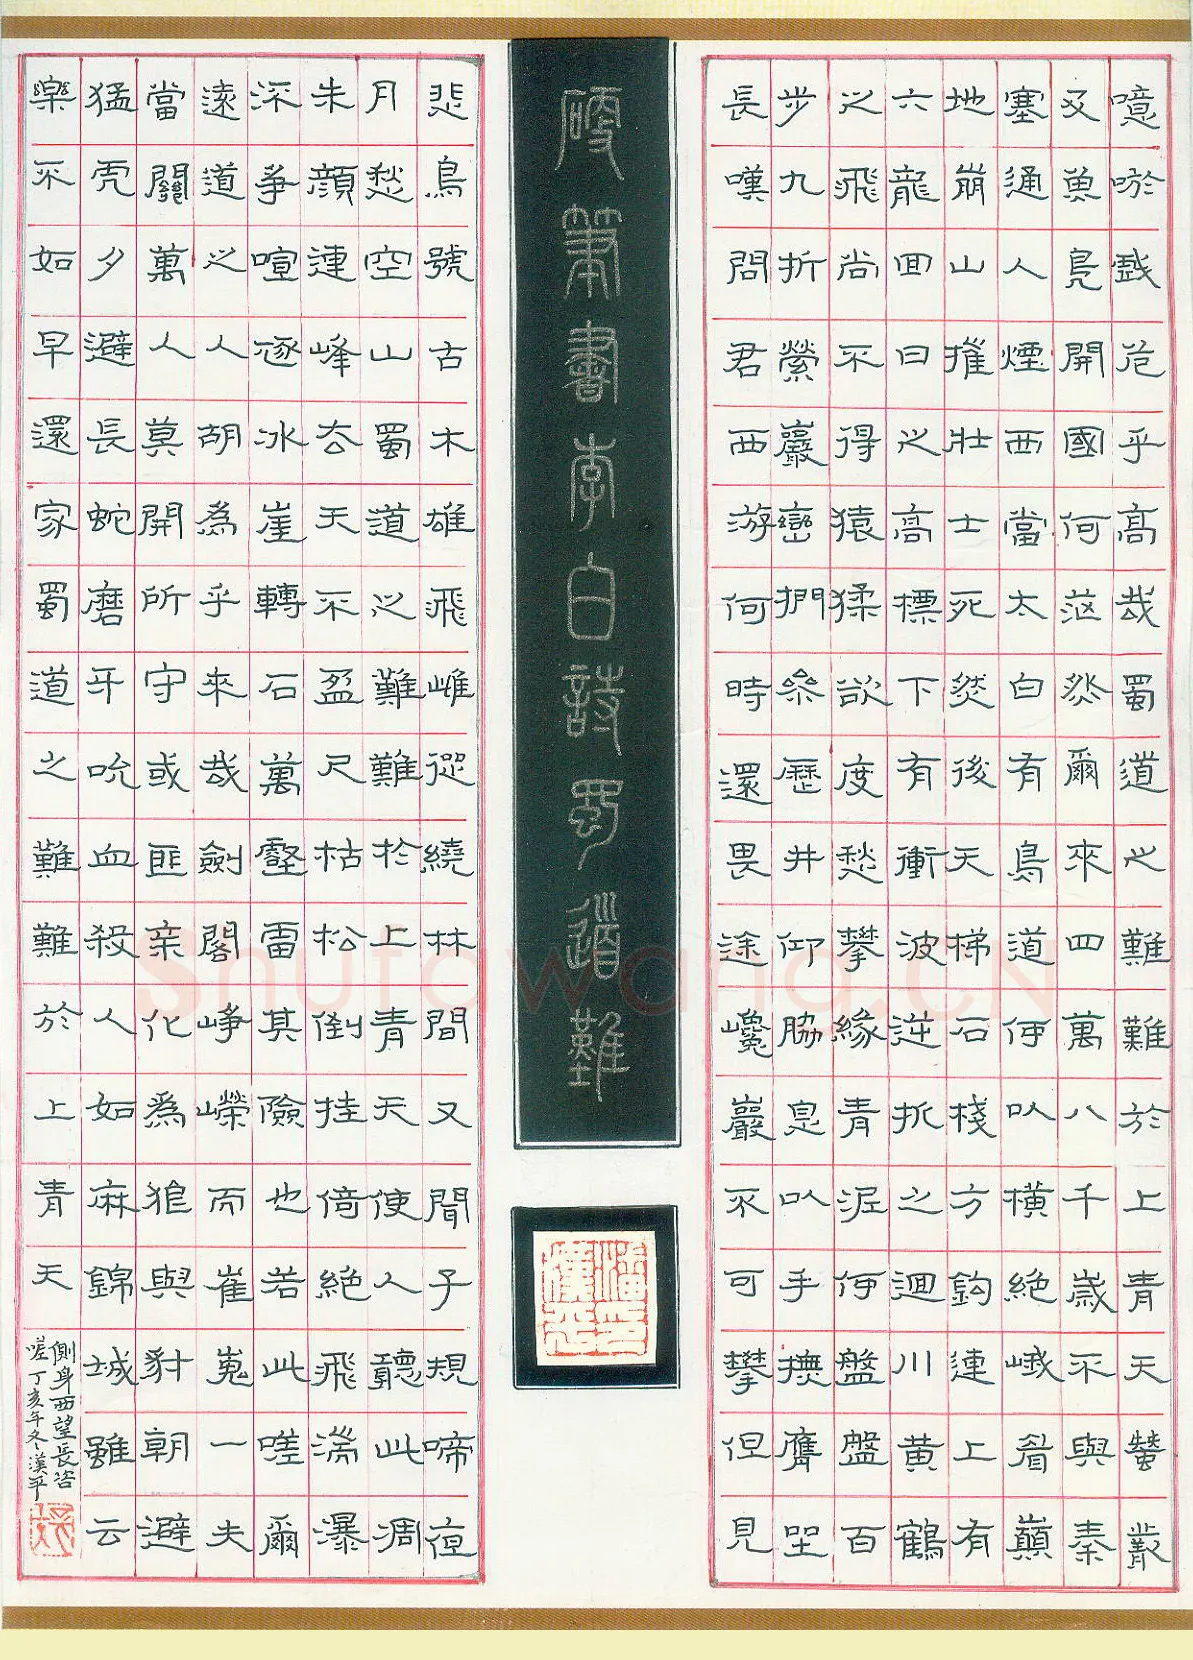 噫吁戲危乎高哉蜀道之難難於上青天蠶叢
及魚鳧開國何茫然爾來四萬八千歲不與秦
塞通人煙西當太白有鳥道何以橫絕峨眉巔
地崩山摧壯士死然後天梯石棧方鉤連上有
六龍回日之高標下有衝波逆折之迴川黃鶴
之飛尚不得猿猱欲度愁攀緣青泥何盤盤百
步九折縈巖巒捫參歷井仰脇息以手撫膺坐
長嘆問君西游何時還畏途巉巖不可攀但見
硬筆書李白詩蜀道難
潘漢平印
悲鳥號古木雄飛雌從繞林間又聞子規啼夜
月愁空山蜀道之難難於上青天使人聽此凋
朱顏連峰去天不盈尺枯松倒挂倚絕飛湍瀑
深爭喧豗冰崖轉石萬壑雷其險也若此嗟爾
遠道之人胡為乎來哉劍閣崢嶸而崔嵬一夫
當關萬人莫開所守或匪親化為狼與豺朝避
猛虎夕避長蛇磨牙吮血殺人如麻錦城雖云
樂不如早還家蜀道之難難於上青天
側身西望長咨
嗟丁亥年冬漢平
Shufawang.CN